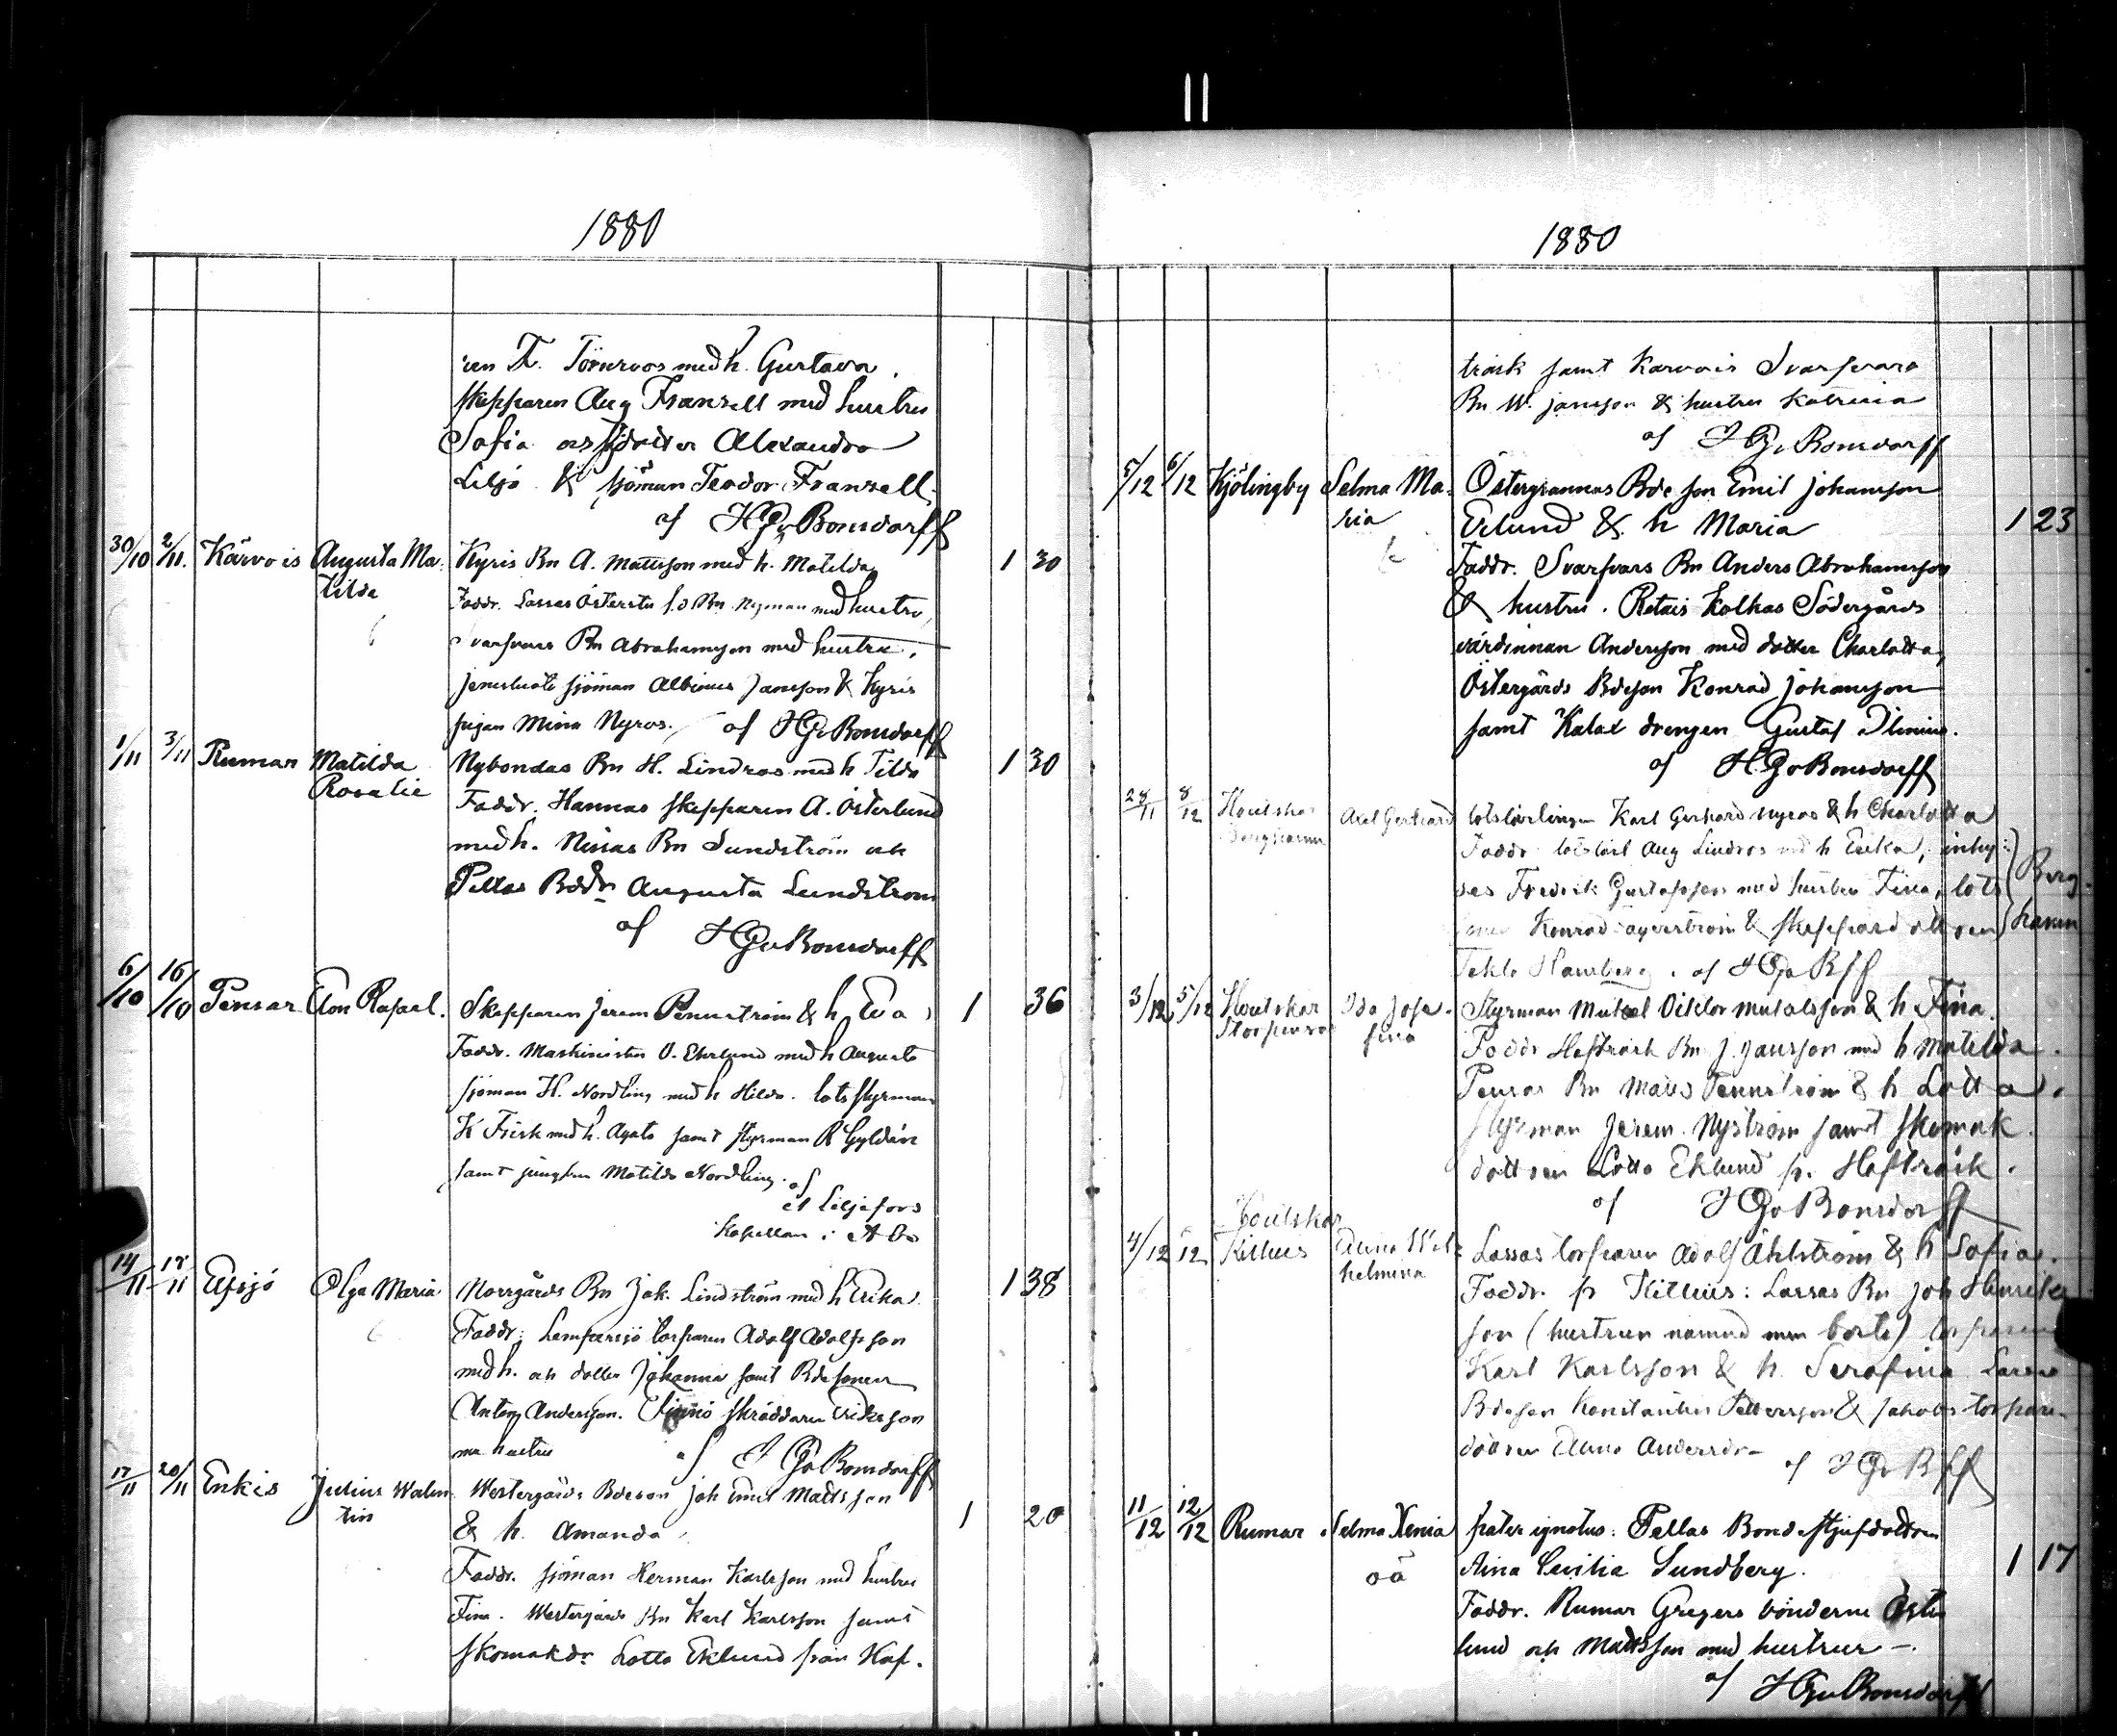 1880
F. Törnroos med h. Gustava.
skepparen Aug Franzell med hustru
Sofia och dotter Alexandra
Liljó & sjöman Teodor Franzell
af HGvBonsdorff
30/10 2/11. Kärvois Augusta Ma- Kyris Bn A. Mattsson med h. Matilda 1 30
tilda Faddr. Lassas Bn Nyman med hustru,
Svarfvars Bn Abrahamsson med hustru,
sjöman Albinus Jansson & Kyris
pigan Mina Nyroos. af HGvBonsdorff
1/11 3/11 Rumar Matilda Nybondas Bn H. Lindroos med h Tilda 1 30
Rosalie Faddr. Hannas skepparen A. Österlund
med h. Nissas Bn Sundström och
Pellas Bddr Augusta Lundstrom
af HGvBonsdorff
6/10 16/10 Pensar Elon Rafael. Skepparen Jerem Pennström & h Eva 1 36
Faddr. Maskinisten O. Ekelund med h Augusta
sjöman H. Nordling med h Hilda. lots styrman
K Frisk med h. Agata samt styrman R Gyldén
samt jungfrun Matilda Nordling. af
Liljefors
Kapellan i Åbo
14/11 17/11 Elfsjö Olga Maria Norrgårds Bn Jak. Lindström med h Erika 1 38
Faddr: Lempersjö torparen Adolf Adolfsson
med h. och dotter Johanna samt Bdesonen
Anton Andersson. Finnö skräddaren Eriksson
m hustru af HGvBonsdorff
17/11 20/11 Enkis Julius Walen- Westergårds Bdeson Joh Emil Mattsson 1 20
tin & h. Amanda
Faddr. sjöman Herman Karlsson med hustru
Fina. Westergårds Bn Karl Karlsson samt
skomakdr Lotta Eklund från Haf-
1880
träsk samt Karvois Svarfvars
Bn W. Jansson & hustru Katrina
af HGvBonsdorff
5/12 6/12 Kjölingby Selma Ma- Östergrannas Bde son Emil Johansson
ria Erlund & h Maria 1 23
Faddr. Svarfvars Bn Anders Abrahamsson
& hustru. Retais Kolkas Södergårds
värdinnan Andersson med dotter Charlotta,
Östergårds Bdeson Konrad Johansson
samt Kalax drengen Gustaf Ilenius.
af HGvBonsdorff
28/11 8/12 Houtskär Axel Gerhard lotslärlingen Karl Gerhard Nyroos & h Charlotta
Berghamn Faddr lotslärl Aug Lindroos med h Erika, inhy-
ses Fredrik Gustafsson med hustru Fina, lots Berg-
Konrad Sägerström & skeppardottren hamn
Tekla Hamberg. af HGvBff
3/12 5/12 Houtskär Ida Jose- Styrman Mikael Viktor Mikalsson & h Fina.
Storpensar fina Faddr Hafträsk Bn J. Jansson med h Matilda.
Pensar Bn Matts Pennström & h Lotta.
styrman Jerem. Nyström samt skomak.
dottren Lotta Eklund fr. Hafträsk.
af HGvBonsdorff
4/12 12 Houtskär
Kittuis Edina Wil- Lassas torparen Adolf Åhlström & h Sofia.
helmina Faddr. fr Kittuis: Lassas Bn Joh Henriks
son (hustrun nämnd men borta) torparen
Karl Karlsson & h. Serafina Lassas
Bdeson Konstantin Pettersson & Jakobs torpare-
dottren Edina Andersdr
af HGvBff
11/12 12/12 Rumar Selma Xenia pater ignotus: Pellas Bonde styfdottren
oä Aina Cecilia Sundberg. 1 17
Faddr. Rumar Gregers bönderne Öster
lund och Mattsson med hustrur.
af HGvBonsdorff